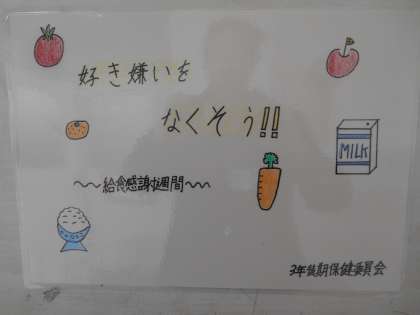 好き嫌いを
なくそう!!
MILK
〜〜給食感謝週間〜〜
3年後期保健委員会